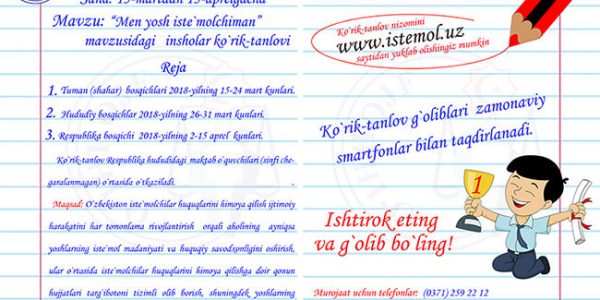 Sana: 15-martdan 15-aprelgacha
Mavzu: “Men yosh iste`molchiman”
mavzusidagi insholar ko`rik-tanlovi
Reja
1. Tuman (shahar) bosqichlari 2018-yilning 15-24 mart kunlari.
2. Hududiy bosqichlar 2018-yilning 26-31 mart kunlari.
3. Respublika bosqichi 2018-yilning 2-15 aprel kunlari.
Ko`rik-tanlov Respublika hududidagi maktab o`quvchilari (sinfi che-
garalanmagan) o`rtasida o`tkaziladi.
Maqsad: O`zbekiston iste`molchilar huquqlarini himoya qilish ijtimoiy
harakatini har tomonlama rivojlantirish orqali aholining ayniqsa
yoshlarning iste`mol madaniyati va huquqiy savodxonligini oshirish,
ular o`rtasida iste`molchilar huquqlarini himoya qilishga doir qonun
hujjatlari targ`ibotini tizimli olib borish, shuningdek yoshlarning
Ko`rik-tanlov nizomini
www.istemol.uz
saytidan yuklab olishingiz mumkin
Ko`rik-tanlov g`oliblari zamonaviy
smartfonlar bilan taqdirlanadi.
1
Ishtirok eting
va g`olib bo`ling!
Murojaat uchun telefonlar: (0371) 259 22 12